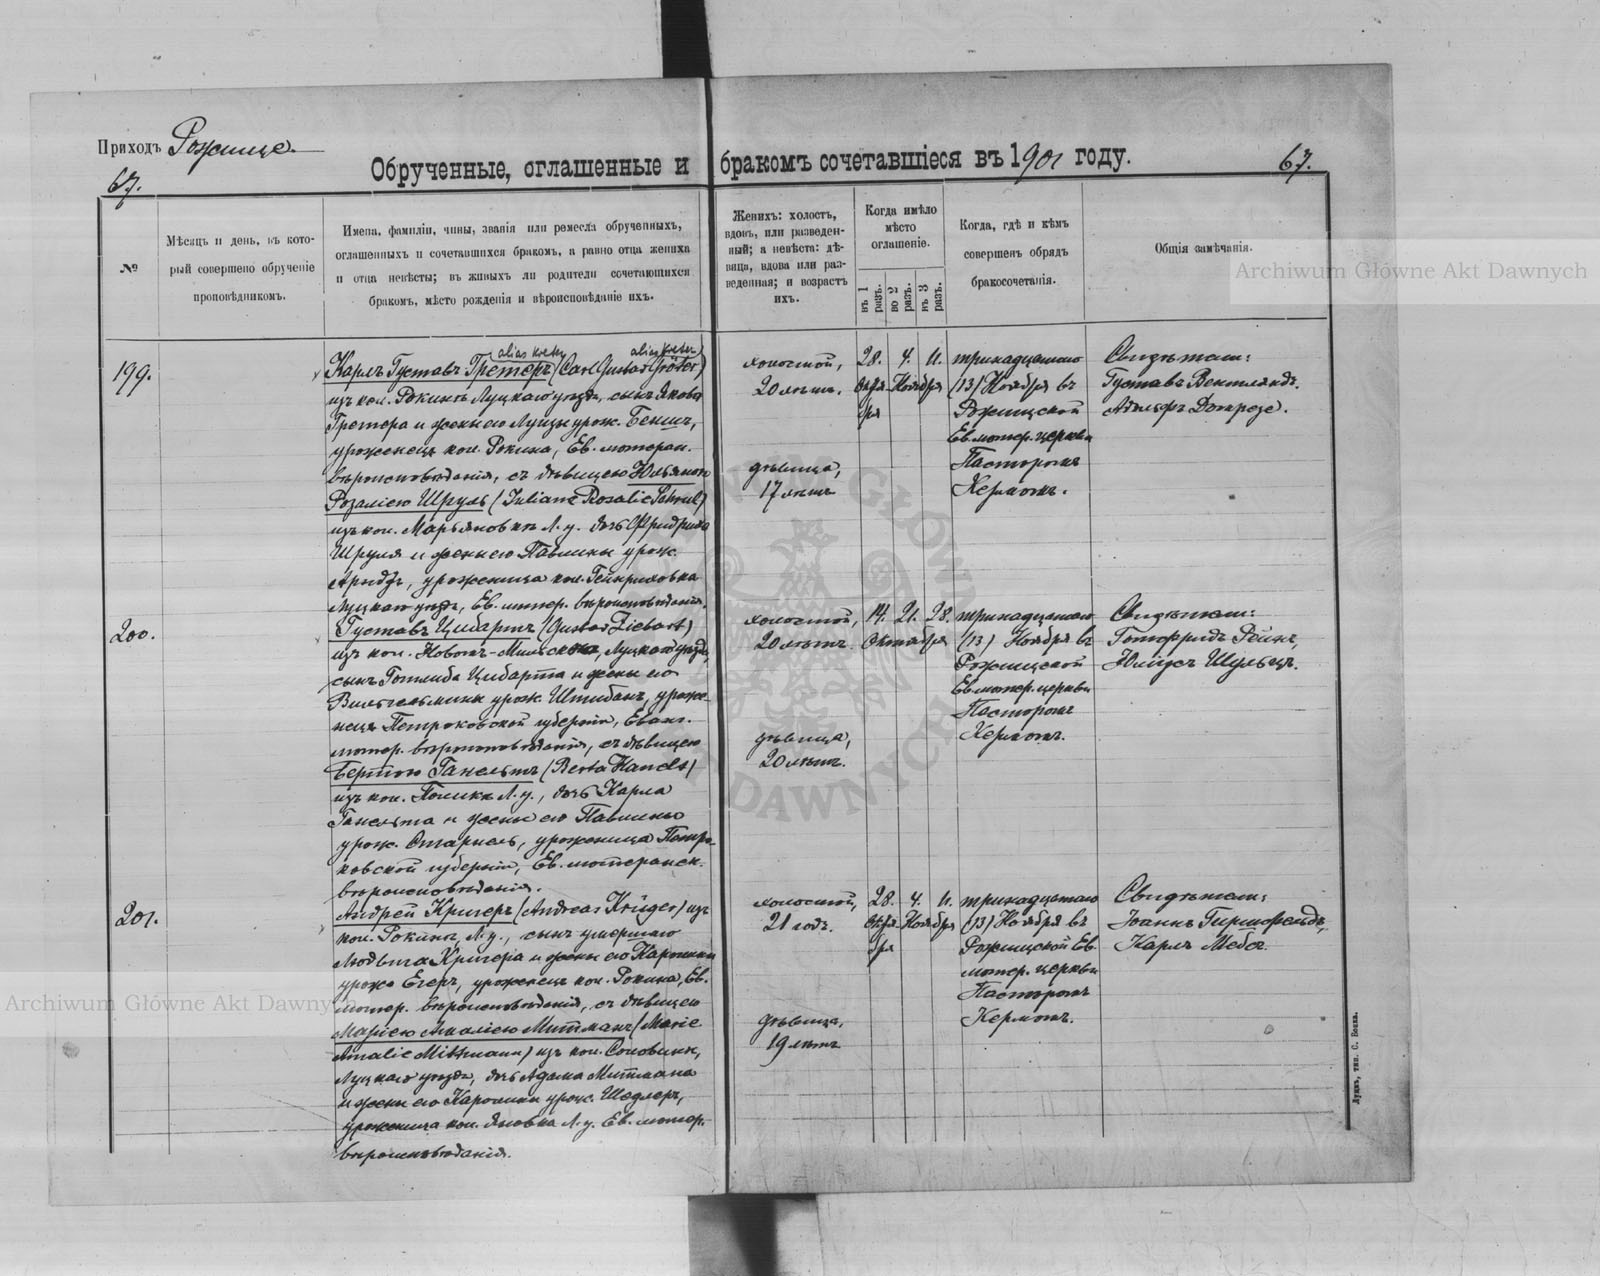 Приходъ Рожище.
Обрученные, оглашенные и бракомъ сочетавшіеся въ 1901 году.
67.
67.
№
Мѣсяцъ и день, въ кото-
рый совершено обрученіе
проповѣдникомъ.
Имена, фамиліи, чины, званія или ремесла обрученныхъ,
оглашенныхъ и сочетавшихся бракомъ, а равно отца жениха
и отца невѣсты; въ живыхъ ли родители сочетающихся
бракомъ, мѣсто рожденія и вѣроисповѣданіе ихъ.
Женихъ: холостъ,
вдовъ, или разведен-
ный; а невѣста: дѣ-
вица, вдова или раз-
веденная; и возрастъ
ихъ.
Когда имѣло
мѣсто
оглашеніе.
въ 1 разъ.
во 2 разъ.
въ 3 разъ.
Когда, гдѣ и кѣмъ
совершенъ обрядъ
бракосочетанія.
Общія замѣчанія.
199.
alias Kreter alias Kreter
Карлъ Густавъ Гретеръ (Carl Gustav Gröter)
изъ кол. Рокинъ Луцкаго уѣзда, сынъ Якова
Гретера и жены его Луизы урож. Беншъ,
уроженецъ кол. Рокина, Ев. лютеран.
вѣроисповѣданія, съ дѣвицею Юльяною
Розаліею Шруль (Juliane Rosalie Schrul)
изъ кол. Марьяновка Л. у. дочь Фридриха
Шруля и жены его Павлины урож.
Арндтъ, уроженица кол. Гейнриховка
Луцкаго уѣзда, Ев. лютер. вѣроисповѣданія.
холостой,
20 лѣтъ.
дѣвица,
17 лѣтъ
28. 4. 11.
Октя- Ноября
бря
тринадцатаго
(13) Ноября въ
Рожищской
Ев. лютер. церкви
Пасторомъ
Кермомъ.
Свидѣтели:
Густавъ Вентландъ.
Адольфъ Домрезе.
200.
Густавъ Цибартъ (Gustav Ziebart)
изъ кол. Новомъ-Мильскѣ, Луцкаго уѣзда,
сынъ Готлиба Цибарта и жены его
Вильгельмины урож. Штибанъ, уроже-
нецъ Петроковской губерніи, Еванг.
лютер. вѣроисповѣданія, съ дѣвицею
Бертою Ганельтъ (Berta Hanelt)
изъ кол. Топика Л. у., дочь Карла
Ганельта и жены его Павлины
урож. Стариель, уроженица Петро-
ковской губерніи, Ев. лютеранск.
вѣроисповѣданія.
холостой,
20 лѣтъ.
дѣвица,
20 лѣтъ.
14. 21. 28.
Октября
тринадцатаго
(13) Ноября въ
Рожищской
Ев. лютер. церкви
Пасторомъ
Кермомъ.
Свидѣтели:
Готфридъ Рейнъ,
Юліусъ Шульцъ.
201.
Андрей Кригеръ (Andreas Krüger) изъ
кол. Рокинъ, Л. у., сынъ умершаго
Людвига Кригера и жены его Каролины
урожд. Егеръ, уроженецъ кол. Рокина, Ев.
лютер. вѣроисповѣданія, съ дѣвицею
Маріею Амаліею Митманъ (Marie
Amalie Mittmann) изъ кол. Соловинъ,
Луцкаго уѣзда, дочь Адама Митмана
и жены его Каролины урож. Шедлеръ,
уроженица кол. Яновка Л. у. Ев. лютер.
вѣроисповѣданія.
холостой,
21 годъ.
дѣвица,
19 лѣтъ
28. 4. 11.
Октя- Ноября
бря
тринадцатаго
(13) Ноября въ
Рожищской Ев.
лютер. церкви
Пасторомъ
Кермомъ.
Свидѣтели:
Іоаннъ Гиршфельдъ,
Карлъ Мебсъ.
Луцкъ, тип. С. Бокка.
Archiwum Główne Akt Dawnych
Archiwum Główne Akt Dawnych